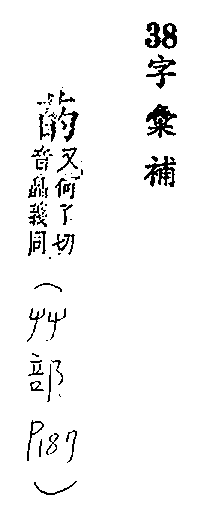 38字彙補
菂
又何了切
音皛義同
(艸部P187)